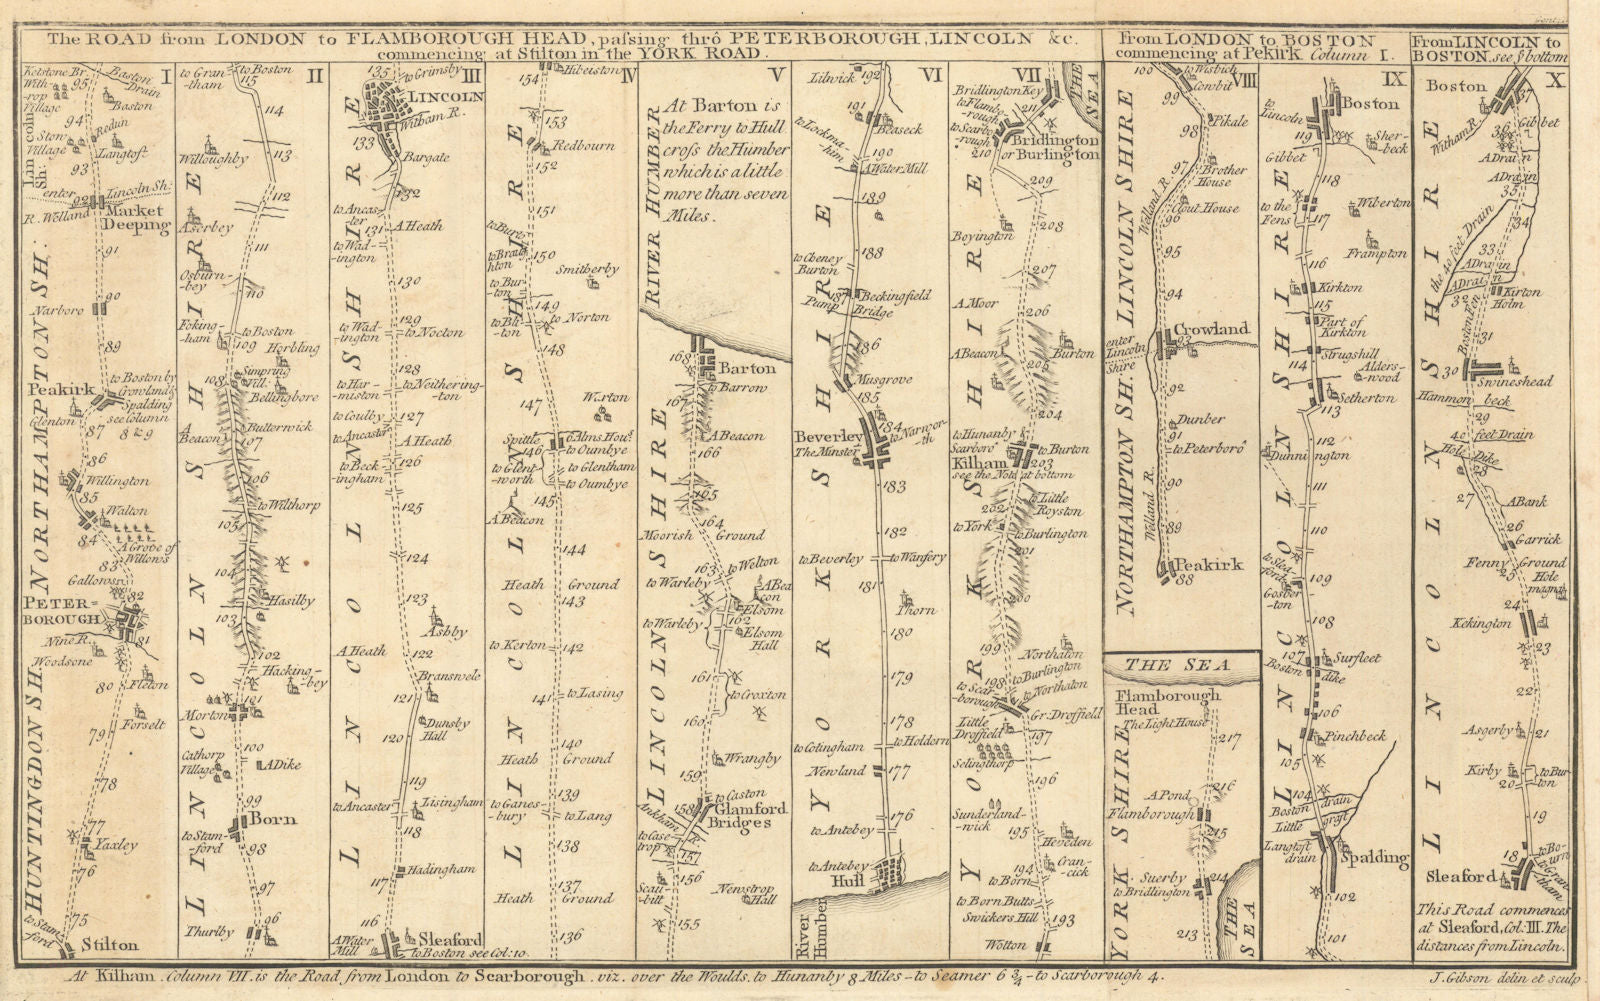 The ROAD from LONDON to FLAMBOROUGH HEAD, paſsing thrô PETERBOROUGH, LINCOLN &c.
commencing at Stilton in the YORK ROAD.
From LONDON to BOSTON
commencing at Pekirk Column I.
From LINCOLN to
BOSTON. see yͤ bottom
I
Ketstone Br.
With-
rop
Village
95
Baston
Drain
Baston
94
Redun
Stow
Village
Langtoft
93
Lincoln
Sh:
enter
Lincoln Sh:
92
R. Welland
Market
Deeping
91
90
Narboro
89
Peakirk
to Boston by
Crowland &
Spalding
see column
8 & 9
Glenton
87
86
Willington
85
Walton
84
A Grove of
Willows
83
Gallows
82
PETER-
BOROUGH
81
Nine R.
Woodsone
80
Fleton
Forselt
79
78
77
Yaxley
76
75
to Stam-
ford
Stilton
HUNTINGDON SH:
NORTHAMPTON SH:
II
to Gran-
tham
to Boston
115
114
Willoughby
113
112
Aserbey
111
Osburn-
bey
110
Foking-
ham
to Boston
109
Horbling
108
Simpring
Vill.
Bellingbore
A
Beacon
Butterwick
107
106
to Wilthorp
105
104
Hasilby
103
102
Hacking-
bey
101
Morton
100
Cathorp
Village
A Dike
99
Born
to Stam-
ford
98
97
96
Thurlby
LINCOLN SHIRE
III
135
to Grimsby
LINCOLN
Witham R.
133
Bargate
132
to Ancas-
ter
131
A Heath
to Wad-
ington
130
129
to Wad-
ington
to Nocton
128
to Har-
miston
to Neithering-
ton
to Coulby
127
to Ancaster
A Heath
to Beck
ingham
126
125
124
123
Ashby
A Heath
122
Branswele
121
Dunsby
Hall
120
119
to Ancaster
Lisingham
118
Hadingham
117
116
A Water
Mill
Sleaford
to Boston see Col: 10.
LINCOLN SHIRE
IV
154
Hibeiston
153
Redbourn
152
151
to Burt
to Braugh
hton
150
Smitherby
to Bur-
ton
149
to Bli-
ton
to Norton
148
147
Warton
Spittle
146
6 Alms Hous.
to Oumbye
to Glent-
worth
to Glentham
to Oumbye
145
A Beacon
144
Heath Ground
143
to Kerton
142
141
to Lasing
140
Heath Ground
139
to Ganes-
bury
to Lang
138
137
Heath Ground
136
LINCOLN SHIRE
V
At Barton is
the Ferry to Hull.
croſs the Humber
which is a little
more than seven
Miles.
RIVER HUMBER
168
Barton
to Barrow
167
A Beacon
166
165
164
Moorish Ground
163
to Welton
to Warleby
A Bea
con
Elsom
162
to Warleby
Elsom
Hall
161
to Croxton
160
Wrangby
159
to Caston
158
Glamford
Bridges
Ankham R.
to Case-
trop
157
156
Scau-
bitt
Newstrop
Hall
155
LINCOLN SHIRE
VI
Lilwick
192
191
to Lockina-
ham
Beaseck
190
A Water Mill
189
188
to Cheney
Burton
187
Beckingfield
Pump Bridge
186
Musgrove
185
184
Beverley
The Minster
to Narwor-
th
183
182
to Beverley
to Wargery
181
Thorn
180
179
178
to Cotingham
to Holdern
Newland
177
176
to Antebey
to Antebey
Hull
River
Humber
YORK SHIRE
VII
THE
SEA
Bridlington Key
to Flamb-
rough
to Scarbo-
rough
211
210
Bridlington
or Burlington
209
208
Boyington
207
A Moor
206
A Beacon
Burton
205
204
to Hunanby
Scarboro
to Burton
Kilham
203
see the Note at bottom
202
to Little
Royston
to York
to Burlington
201
200
Northalon
199
to Burlington
198
to Northalon
to Scar-
borough
Gr. Droffield
Little
Droffield
197
Selingthorp
196
Sunderland-
wick
195
Heveden
194
Cran-
cick
to Born
to Born Butts
Swickers Hill
193
Wotton
YORK SHIRE
VIII
100
to Wisbich
Cowbit
99
98
Pikale
97
Brother
House
Welland R.
Clout House
96
95
94
Crowland
93
enter
Lincoln
Shire
92
Dunber
91
to Peterborô
90
Welland R.
89
Peakirk
88
NORTHAMPTON SH: LINCOLN SHIRE
THE SEA
Flamborough
Head
The Light House
217
216
A Pond
Flamborough
215
Suerby
to Bridlington
214
213
THE
SEA
YORK SHIRE
IX
to
Lincoln
Boston
119
Sher-
beck
Gibbet
118
to the
Fens
Wiberton
117
Frampton
116
Kirkton
115
Part of
Kirkton
Strugshill
114
Alders-
wood
Setherton
113
112
Dunnington
111
110
to Slea-
ford
109
Gosber-
ton
108
107
Surfleet
Boston
dike
106
Pinchbeck
105
104
Boston drain
Little groft
Langtoft
drain
Spalding
102
101
LINCOLN SHIRE
X
Boston
37
Witham R.
Gibbet
36
A Drain
A Drain
35
34
the 40 feet Drain
33
A Drain
A Drain
32
Kirton
Holm
Boston R.
31
30
Swineshead
Hammon beck
29
40 feet Drain
Hole
Dike
28
27
A Bank
26
Garrick
Fenny Ground
25
Hole
magna
24
Kekington
23
22
Asgerby
21
Kirby
to Bur-
ton
20
19
18
to Bo-
urn
Sleaford
to Gran-
tham
This Road commences
at Sleaford, Col: III. The
distances from Lincoln.
LINCOLN SHIRE
At Kilham. Column VII. is the Road from London to Scarborough. viz. over the Woulds. to Hunanby 8 Miles - to Seamer 6 ¾ - to Scarborough 4.
J. Gibson delin et sculp.